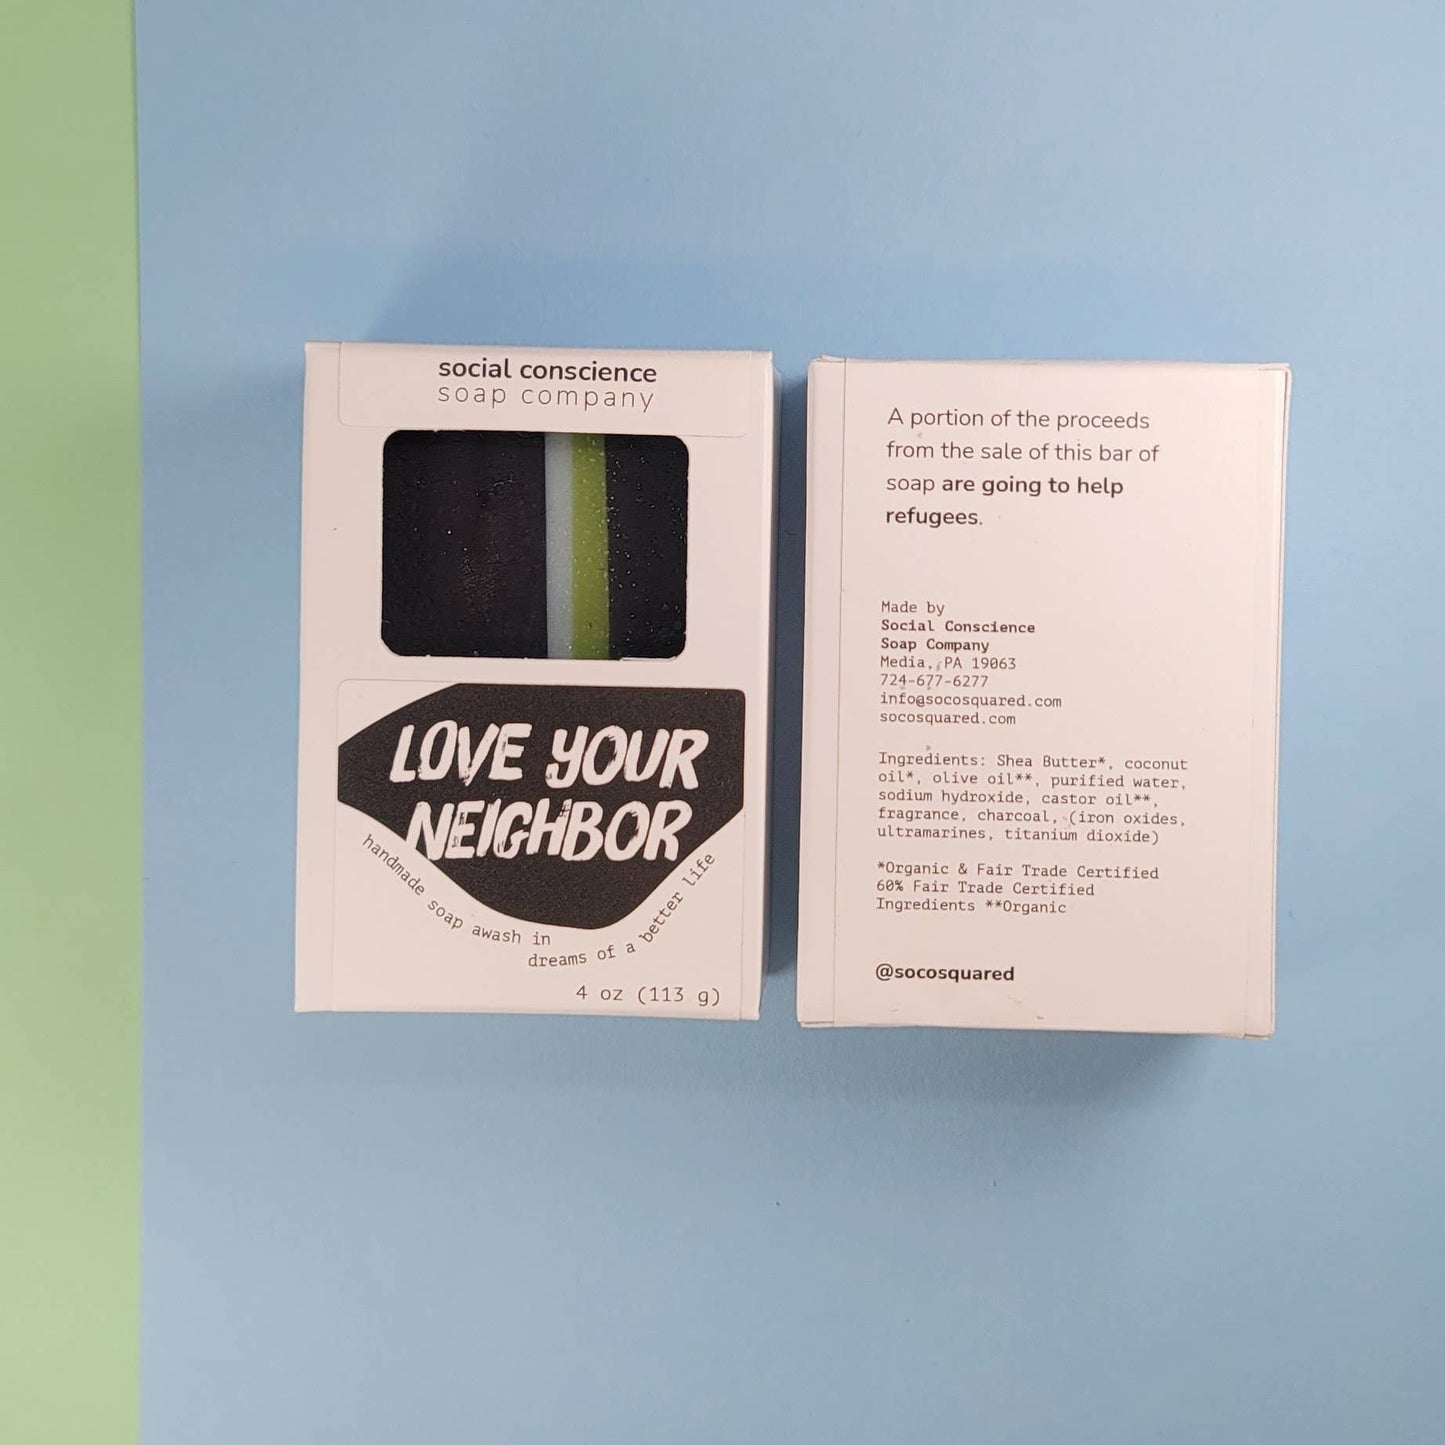 social conscience
soap company
LOVE YOUR
NEIGHBOR
handmade soap awash in
dreams of a better life
4 oz (113 g)
A portion of the proceeds
from the sale of this bar of
soap are going to help
refugees.
Made by
Social Conscience
Soap Company
Media, PA 19063
724-677-6277
info@socosquared.com
socosquared.com
Ingredients: Shea Butter*, coconut
oil*, olive oil**, purified water,
sodium hydroxide, castor oil**,
fragrance, charcoal, (iron oxides,
ultramarines, titanium dioxide)
*Organic & Fair Trade Certified
60% Fair Trade Certified
Ingredients **Organic
@socosquared